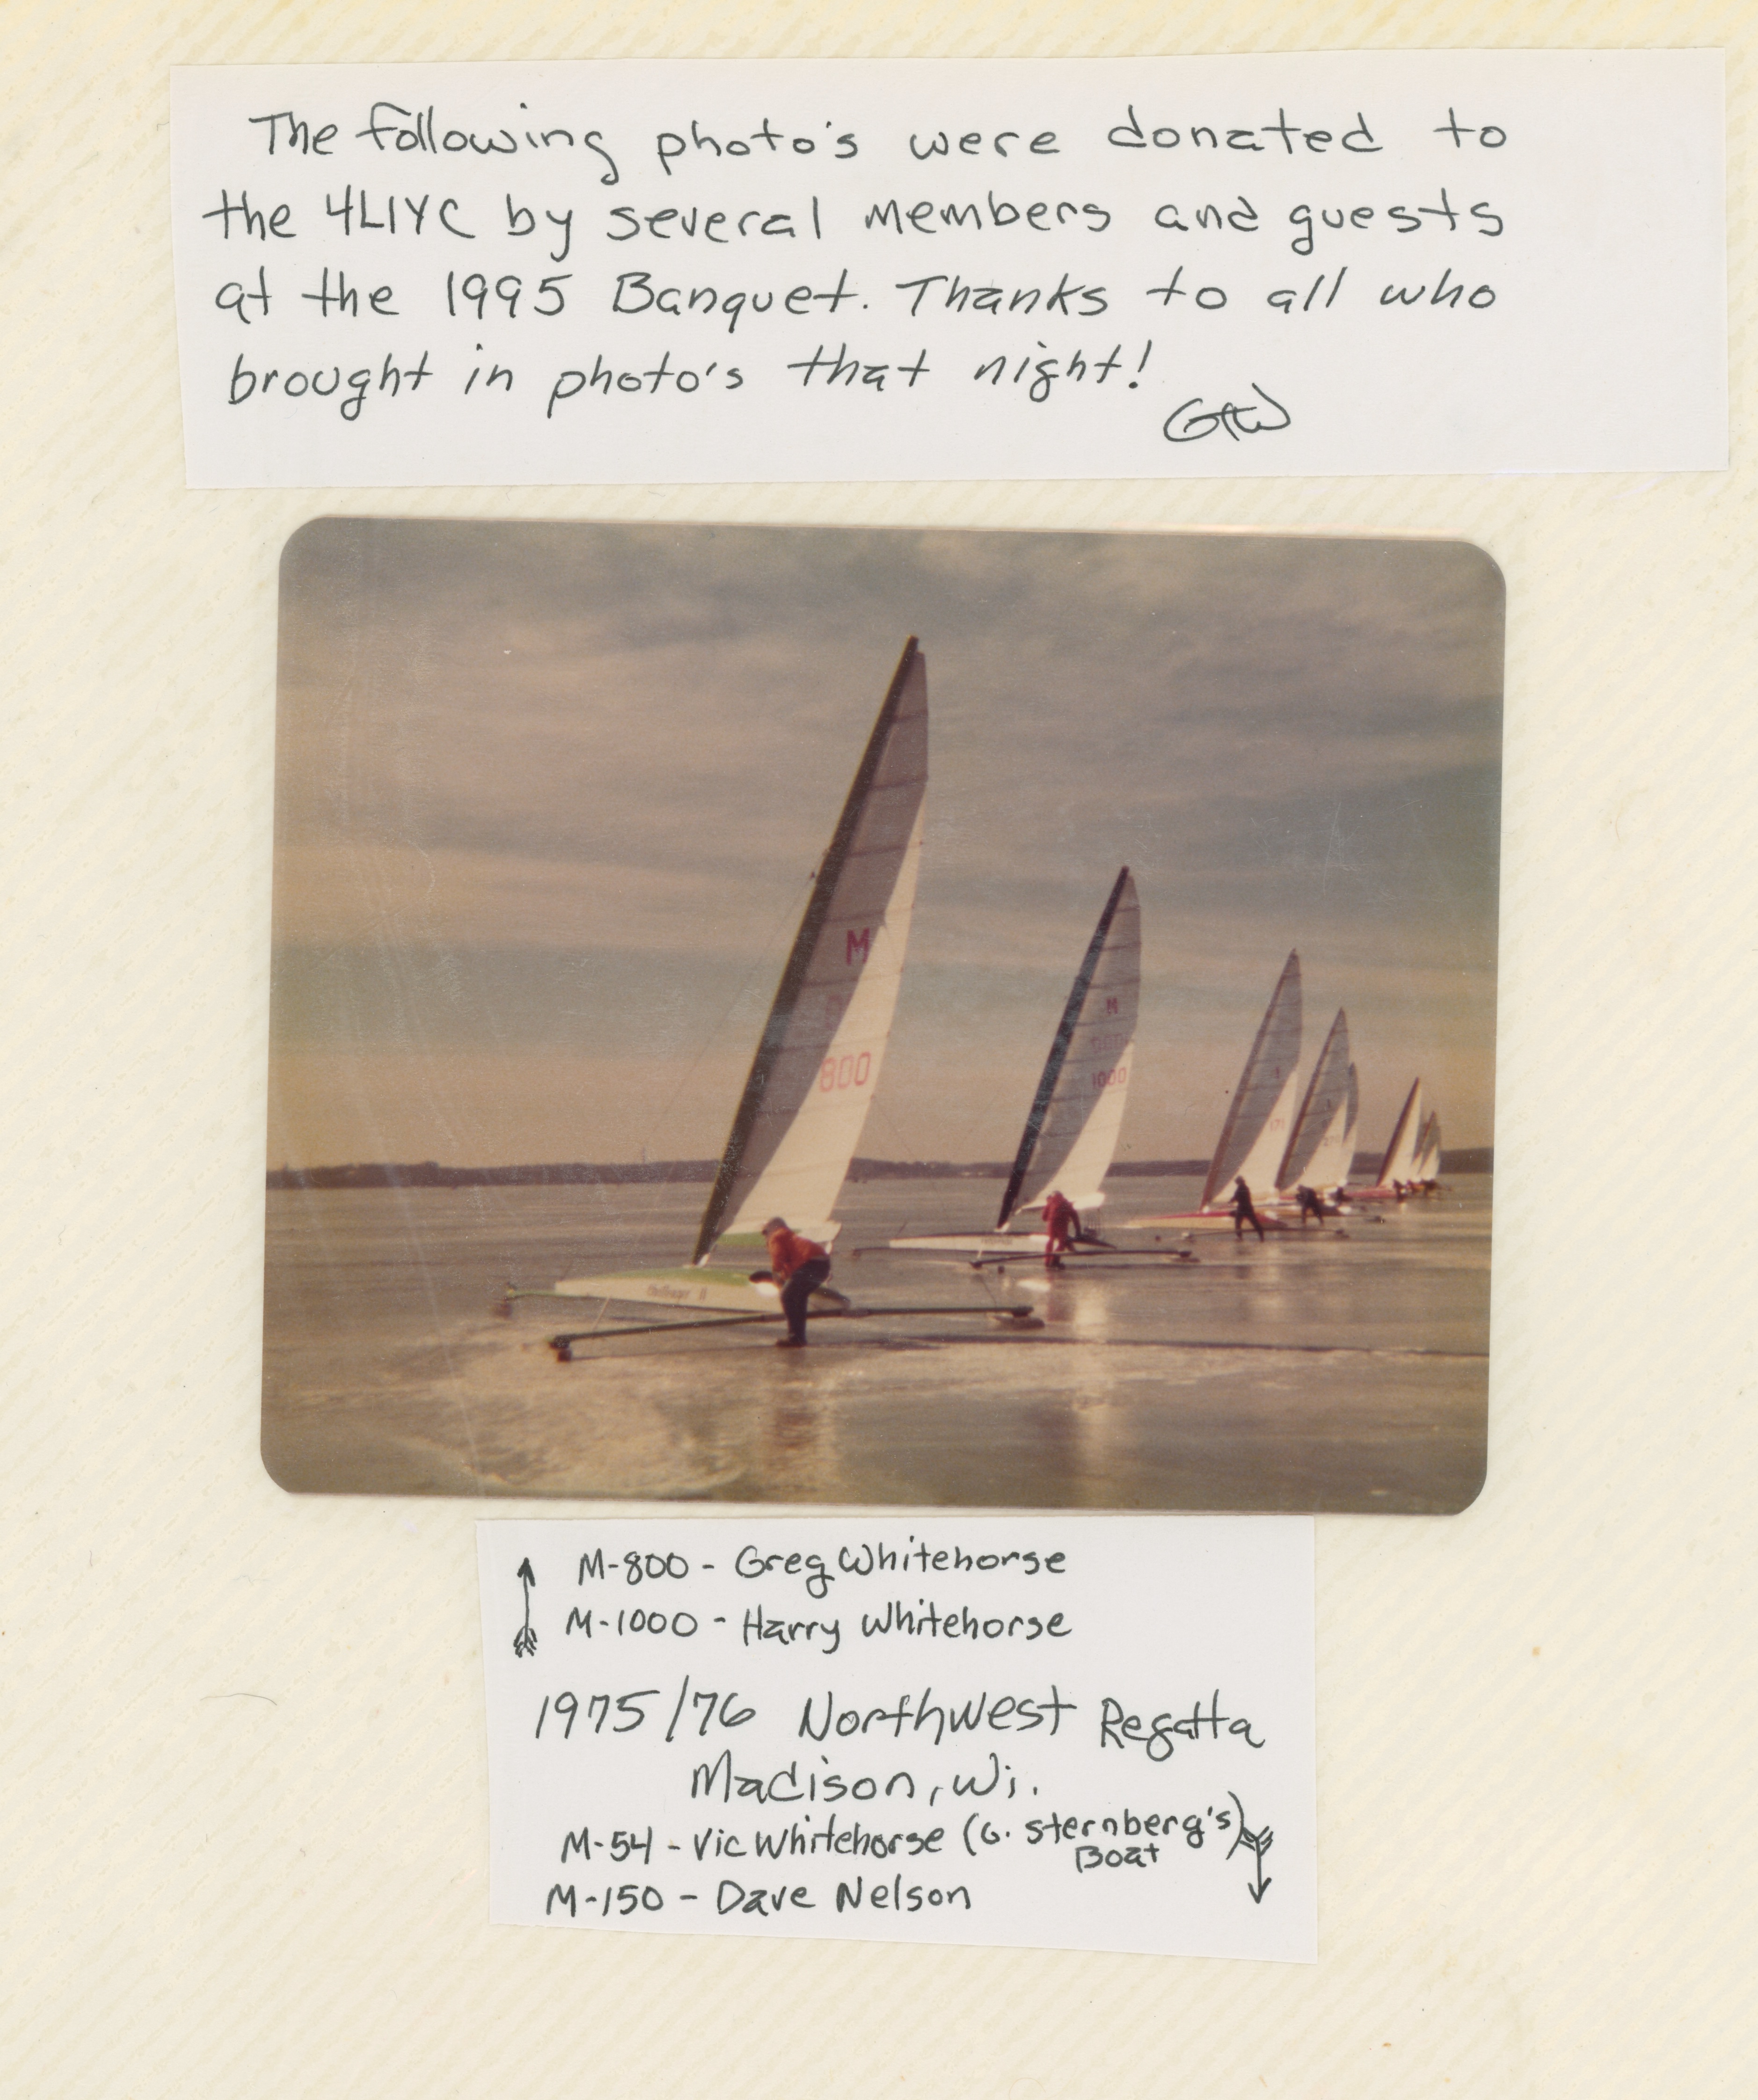 The following photo's were donated to
the 4LIYC by several members and guests
at the 1995 Banquet. Thanks to all who
brought in photo's that night!
GRW
M
800
M
1000
M-800 - Greg Whitehorse
M-1000 - Harry Whitehorse
1975/76 Northwest Regatta
Madison, Wi.
M-54 - Vic Whitehorse (G. Sternberg's)
Boat
M-150 - Dave Nelson